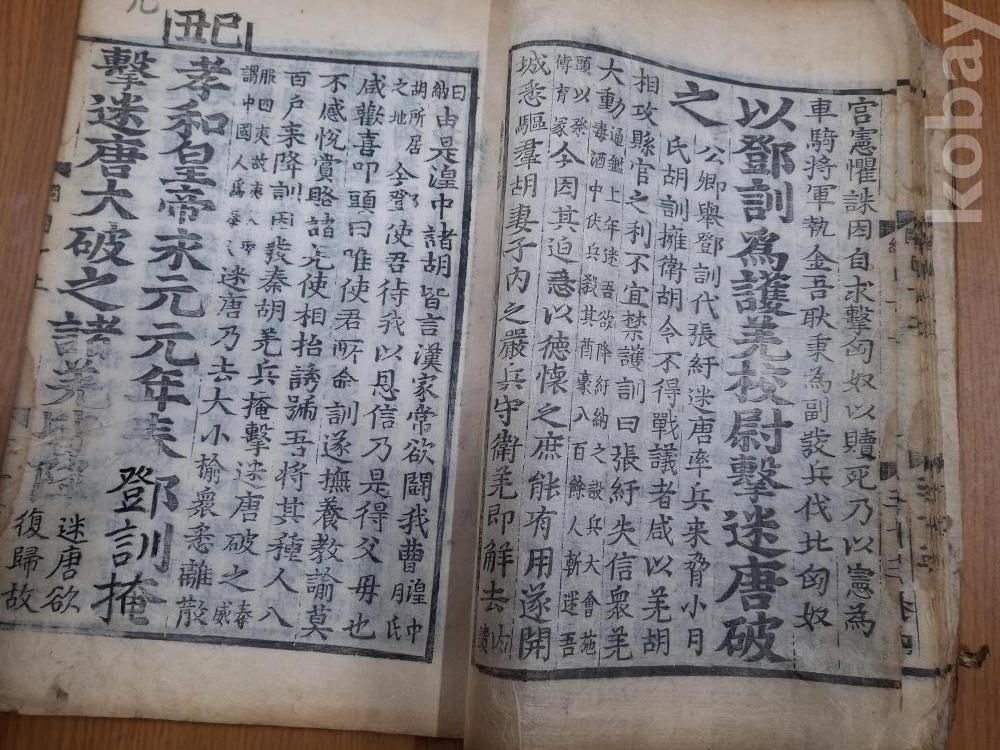 官憲懼誅因自求擊匈奴以贖死乃以憲為
車騎將軍執金吾耿秉為副發兵伐北匈奴
以鄧訓爲護羌校尉擊迷唐破
之 公卿舉鄧訓代張紆迷唐率兵来脅小月
氏胡訓擁衛胡令不得戰議者咸以羌胡
相攻縣官之利不宜禁護訓曰張紆失信衆羌
大動
通鑑上年迷吾欲降紆納之設兵大會施
毒酒中伏兵殺其酋豪八百餘人斬迷吾
頭以祭
傅育冢
今因其迫急以德懷之庶能有用遂開
城悉驅羣胡妻子內之嚴兵守衛羌即解去
內
讀
曰
納
由是湟中諸胡皆言漢家帝欲鬪我曹
湟中
月氏
胡所居
之地
今鄧使君待我以恩信乃是得父母也
咸歡喜叩頭曰唯使君所命訓遂撫養教諭莫
不感悅賞賂諸羌使相招誘號吾將其種人八
百户来降訓因發秦胡羌兵掩擊迷唐破之
秦
威
服四夷故夷人
謂中國人爲秦
迷唐乃去大小榆衆悉離散
己丑
孝和皇帝永元元年春 鄧訓掩
擊迷唐大破之諸羌
迷唐欲
復歸故
kobay